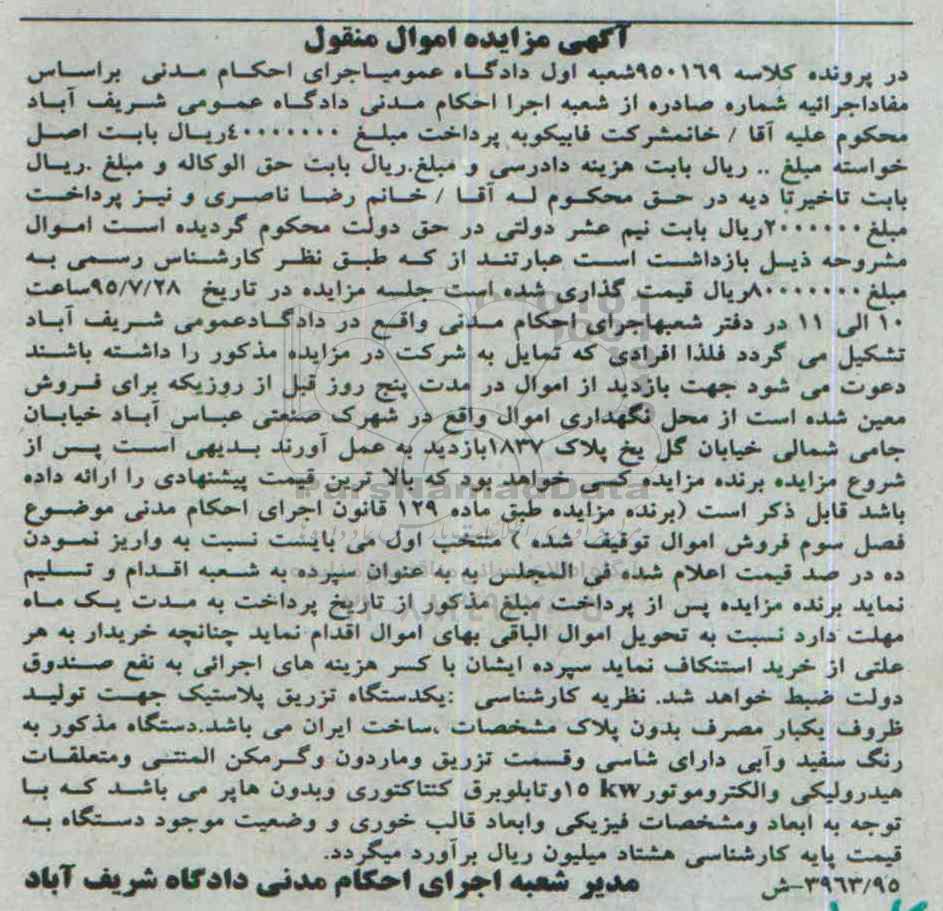 آگهی مزایده اموال منقول
در پرونده کلاسه ۹۵۰۱۶۹شعبه اول دادگاه عمومیاجرای احکام مدنی براساس
مفاداجرائیه شماره صادره از شعبه اجرا احکام مدنی دادگاه عمومی شریف آباد
محکوم علیه آقا / خانمشرکت فابیکوبه پرداخت مبلغ ۴۰۰۰۰۰۰۰ریال بابت اصل
خواسته مبلغ .. ریال بابت هزینه دادرسی و مبلغ.ریال بابت حق الوکاله و مبلغ .ریال
بابت تاخیرتا دیه در حق محکوم له آقا / خانم رضا ناصری و نیز پرداخت
مبلغ۲۰۰۰۰۰۰ریال بابت نیم عشر دولتی در حق دولت محکوم گردیده است اموال
مشروحه ذیل بازداشت است عبارتند از که طبق نظر کارشناس رسمی به
مبلغ۸۰۰۰۰۰۰۰ریال قیمت گذاری شده است جلسه مزایده در تاریخ ۹۵/۷/۲۸ساعت
۱۰ الی ۱۱ در دفتر شعبهاجرای احکام مدنی واقع در دادگادعمومی شریف آباد
تشکیل می گردد فلذا افرادی که تمایل به شرکت در مزایده مذکور را داشته باشند
دعوت می شود جهت بازدید از اموال در مدت پنج روز قبل از روزیکه برای فروش
معین شده است از محل نگهداری اموال واقع در شهرک صنعتی عباس آباد خیابان
جامی شمالی خیابان گل یخ پلاک ۱۸۳۷بازدید به عمل آورند بدیهی است پس از
شروع مزایده برنده مزایده کسی خواهد بود که بالا ترین قیمت پیشنهادی را ارائه داده
باشد قابل ذکر است (برنده مزایده طبق ماده ۱۲۹ قانون اجرای احکام مدنی موضوع
فصل سوم فروش اموال توقیف شده ) منتخب اول می بایست نسبت به واریز نمودن
ده در صد قیمت اعلام شده فی المجلس به به عنوان سپرده به شعبه اقدام و تسلیم
نماید برنده مزایده پس از پرداخت مبلغ مذکور از تاریخ پرداخت به مدت یک ماه
مهلت دارد نسبت به تحویل اموال الباقی بهای اموال اقدام نماید چنانچه خریدار به هر
علتی از خرید استنکاف نماید سپرده ایشان با کسر هزینه های اجرائی به نفع صندوق
دولت ضبط خواهد شد. نظریه کارشناسی :یکدستگاه تزریق پلاستیک جهت تولید
ظروف یکبار مصرف بدون پلاک مشخصات ،ساخت ایران می باشد.دستگاه مذکور به
رنگ سفید وآبی دارای شاسی وقسمت تزریق وماردون وگرمکن المنتی ومتعلقات
هیدرولیکی والکتروموتور۱۵ kwوتابلوبرق کنتاکتوری وبدون هاپر می باشد که با
توجه به ابعاد ومشخصات فیزیکی وابعاد قالب خوری و وضعیت موجود دستگاه به
قیمت پایه کارشناسی هشتاد میلیون ریال برآورد میگردد.
۳۹۶۳/۹۵-ش مدیر شعبه اجرای احکام مدنی دادگاه شریف آباد
ParsNamadData